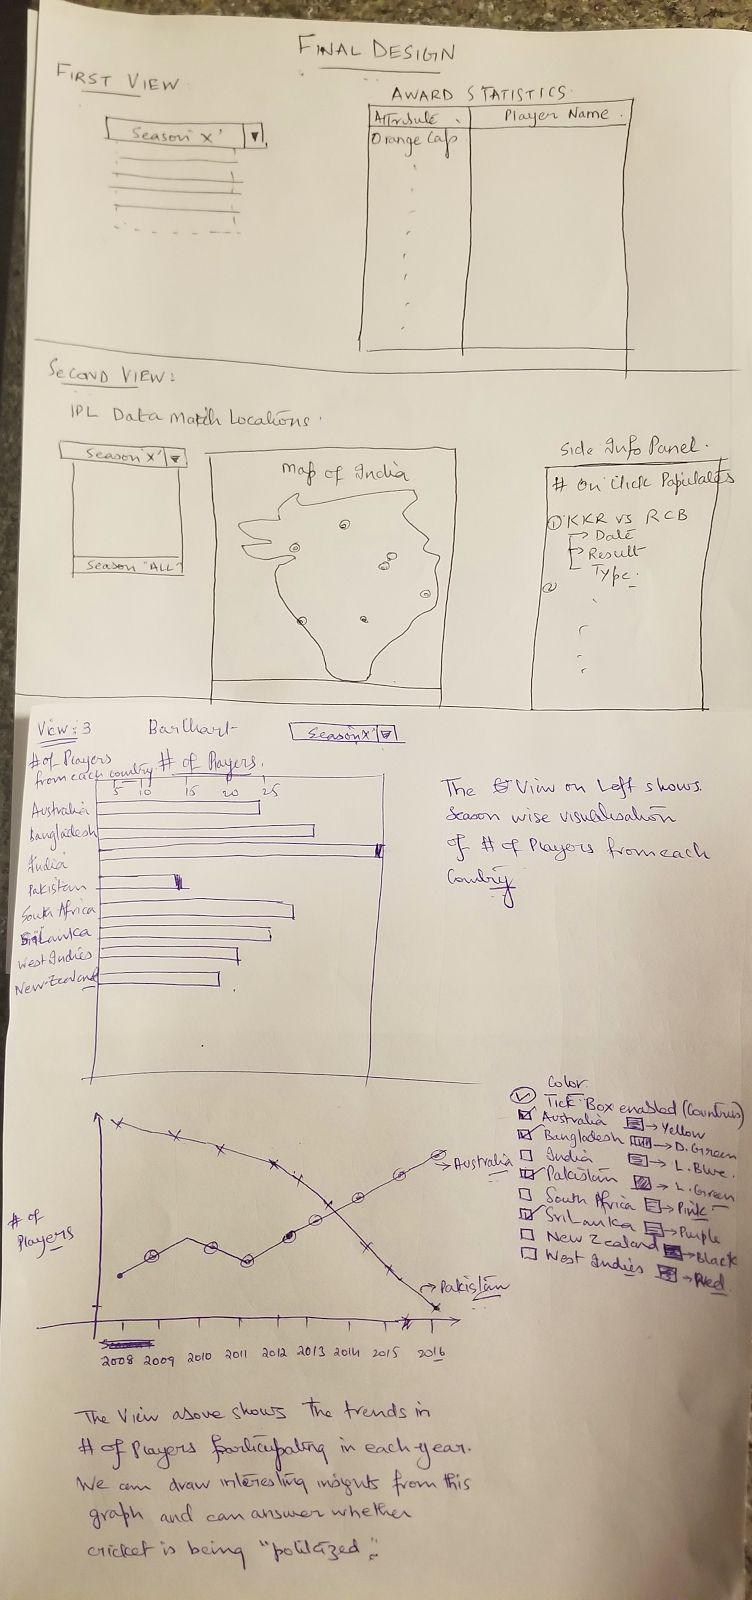 FINAL DESIGN
FIRST VIEW
Season 'X'
AWARD STATISTICS
Attribute. Player Name.
Orange Cap
SECOND VIEW:
IPL Data Match Locations.
Season 'X'
Season "ALL"
Map of India
Side Info Panel.
# On Click Populates
① KKR vs RCB
→ Date
→ Result
Type.
②
View: 3 BarChart Season 'X'
# of Players
from each country
# of Players.
5 10 15 20 25
Australia
Bangladesh
India
Pakistan
South Africa
SriLanka
West Indies
New-Zealand
The View on Left shows
Season wise visualisation
of # of Players from each
Country
# of
Players
→ Australia
→ Pakistan
2008 2009 2010 2011 2012 2013 2014 2015 2016
Color
Tick Box enabled (Countries)
Australia → Yellow
Bangladesh → D. Green
India → L. Blue.
Pakistan → L. Green
South Africa → Pink
SriLanka → Purple
New Zealand → Black
West Indies → Red
The View above shows the trends in
# of Players participating in each year.
We can draw interesting insights from this
graph and can answer whether
cricket is being "politized".